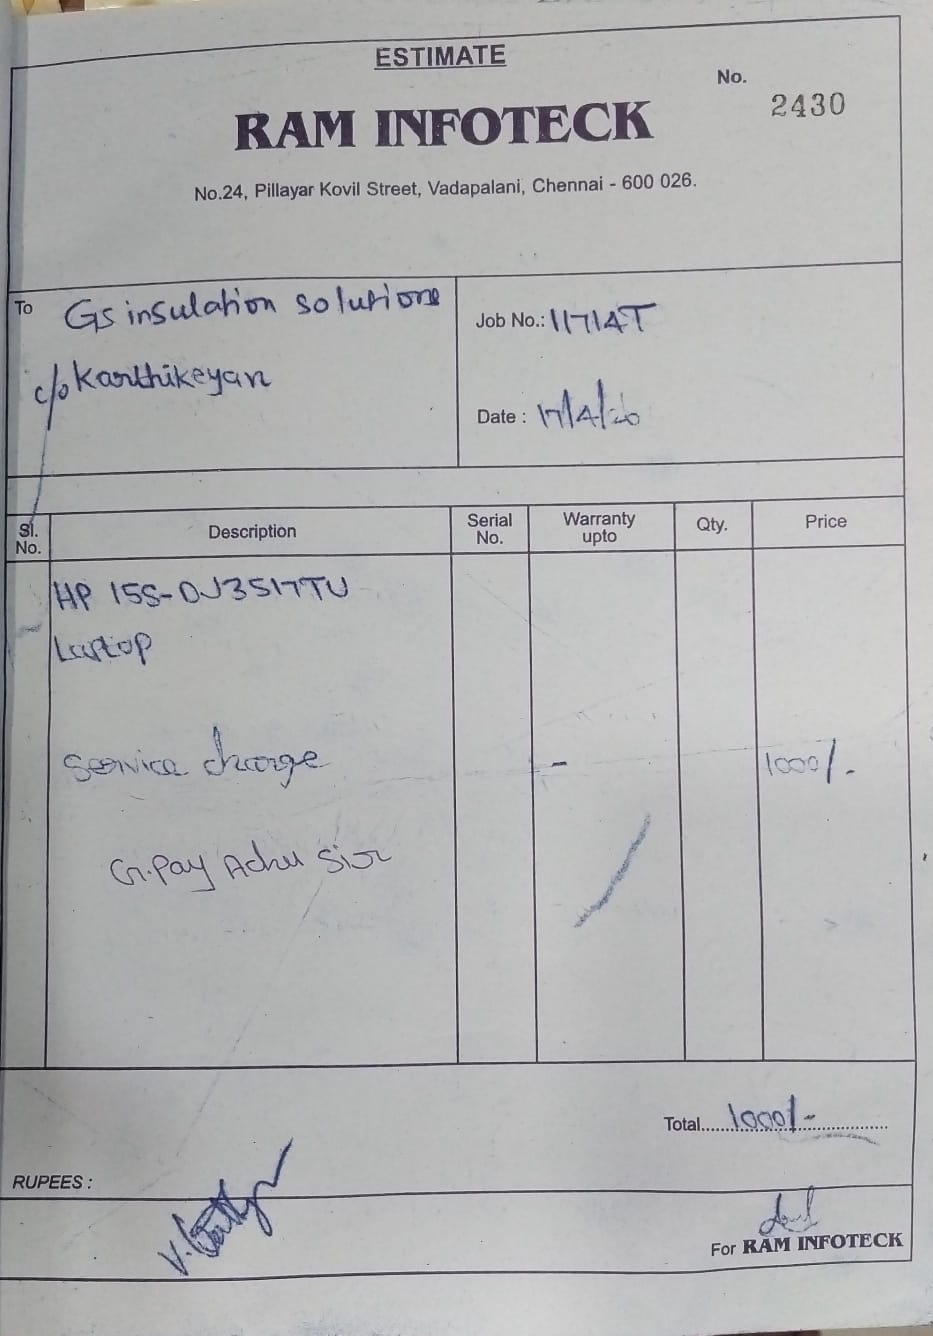 ESTIMATE
No.
2430
RAM INFOTECK
No.24, Pillayar Kovil Street, Vadapalani, Chennai - 600 026.
To GS insulation solutions
c/o Karthikeyan
Job No.: 11714T
Date : 17/4/26
Sl. No. Description Serial No. Warranty upto Qty. Price
HP 15S-DJ3517TU
Laptop
Service charge - 1000/-
G.Pay Achu Sir
Total...... 1000/-
RUPEES :
For RAM INFOTECK